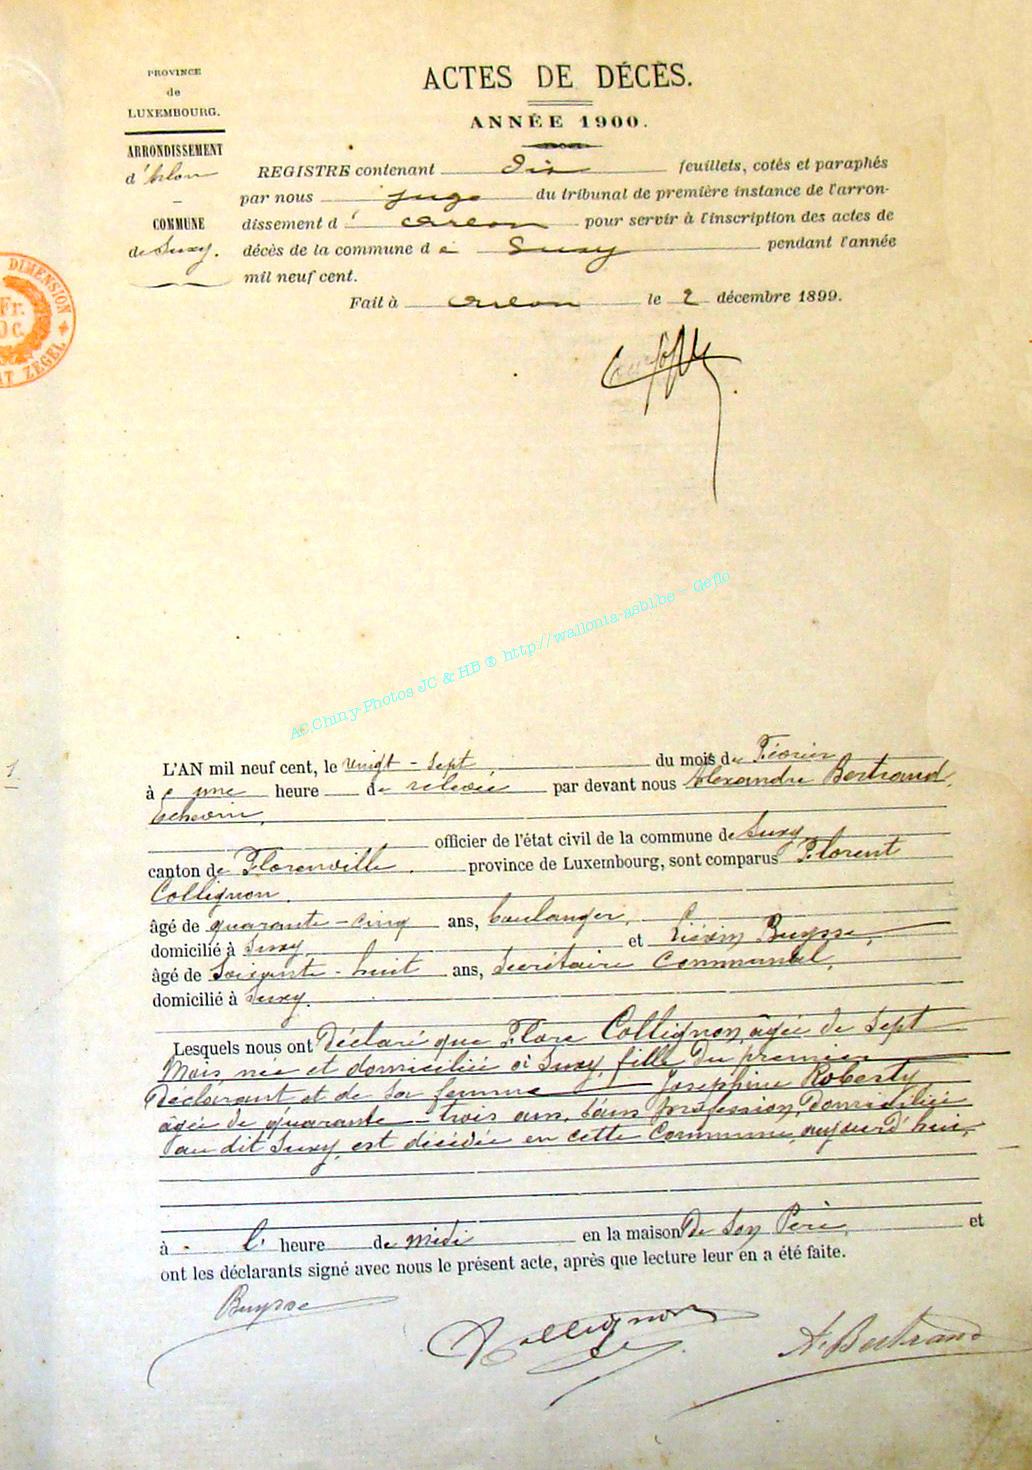 PROVINCE
de
LUXEMBOURG.
ARRONDISSEMENT
d'Arlon
COMMUNE
de Suxy.
ACTES DE DÉCÈS.
ANNÉE 1900.
REGISTRE contenant Dix feuillets, cotés et paraphés
par nous juge du tribunal de première instance de l'arron-
dissement d' Arlon pour servir à l'inscription des actes de
décès de la commune d e Suxy pendant l'année
mil neuf cent.
Fait à Arlon le 2 décembre 1899.
DIMENSION
Fr.
0 c.
AT ZEGEL
AC Chiny-Photos JC & HB ® http://wallonia-asbl.be - Geflo
1
L'AN mil neuf cent, le vingt-sept, du mois de Février
à une heure de relevée par devant nous Alexandre Bertrand,
échevin,
officier de l'état civil de la commune de Suxy
canton de Florenville. province de Luxembourg, sont comparus Florent
Collignon.
âgé de quarante-cinq ans, boulanger,
domicilié à Suxy et Liévin Buysse,
âgé de soixante-huit ans, secrétaire communal,
domicilié à Suxy.
Lesquels nous ont déclaré que Flore Collignon, âgée de sept
mois, née et domiciliée à Suxy, fille du premier
déclarant et de sa femme Joséphine Roberty
âgée de quarante-trois ans, sans profession, domiciliée
au dit Suxy, est décédée en cette commune, aujourd'hui,
à l' heure de midi en la maison de son Père, et
ont les déclarants signé avec nous le présent acte, après que lecture leur en a été faite.
Buysse
Collignon
A. Bertrand